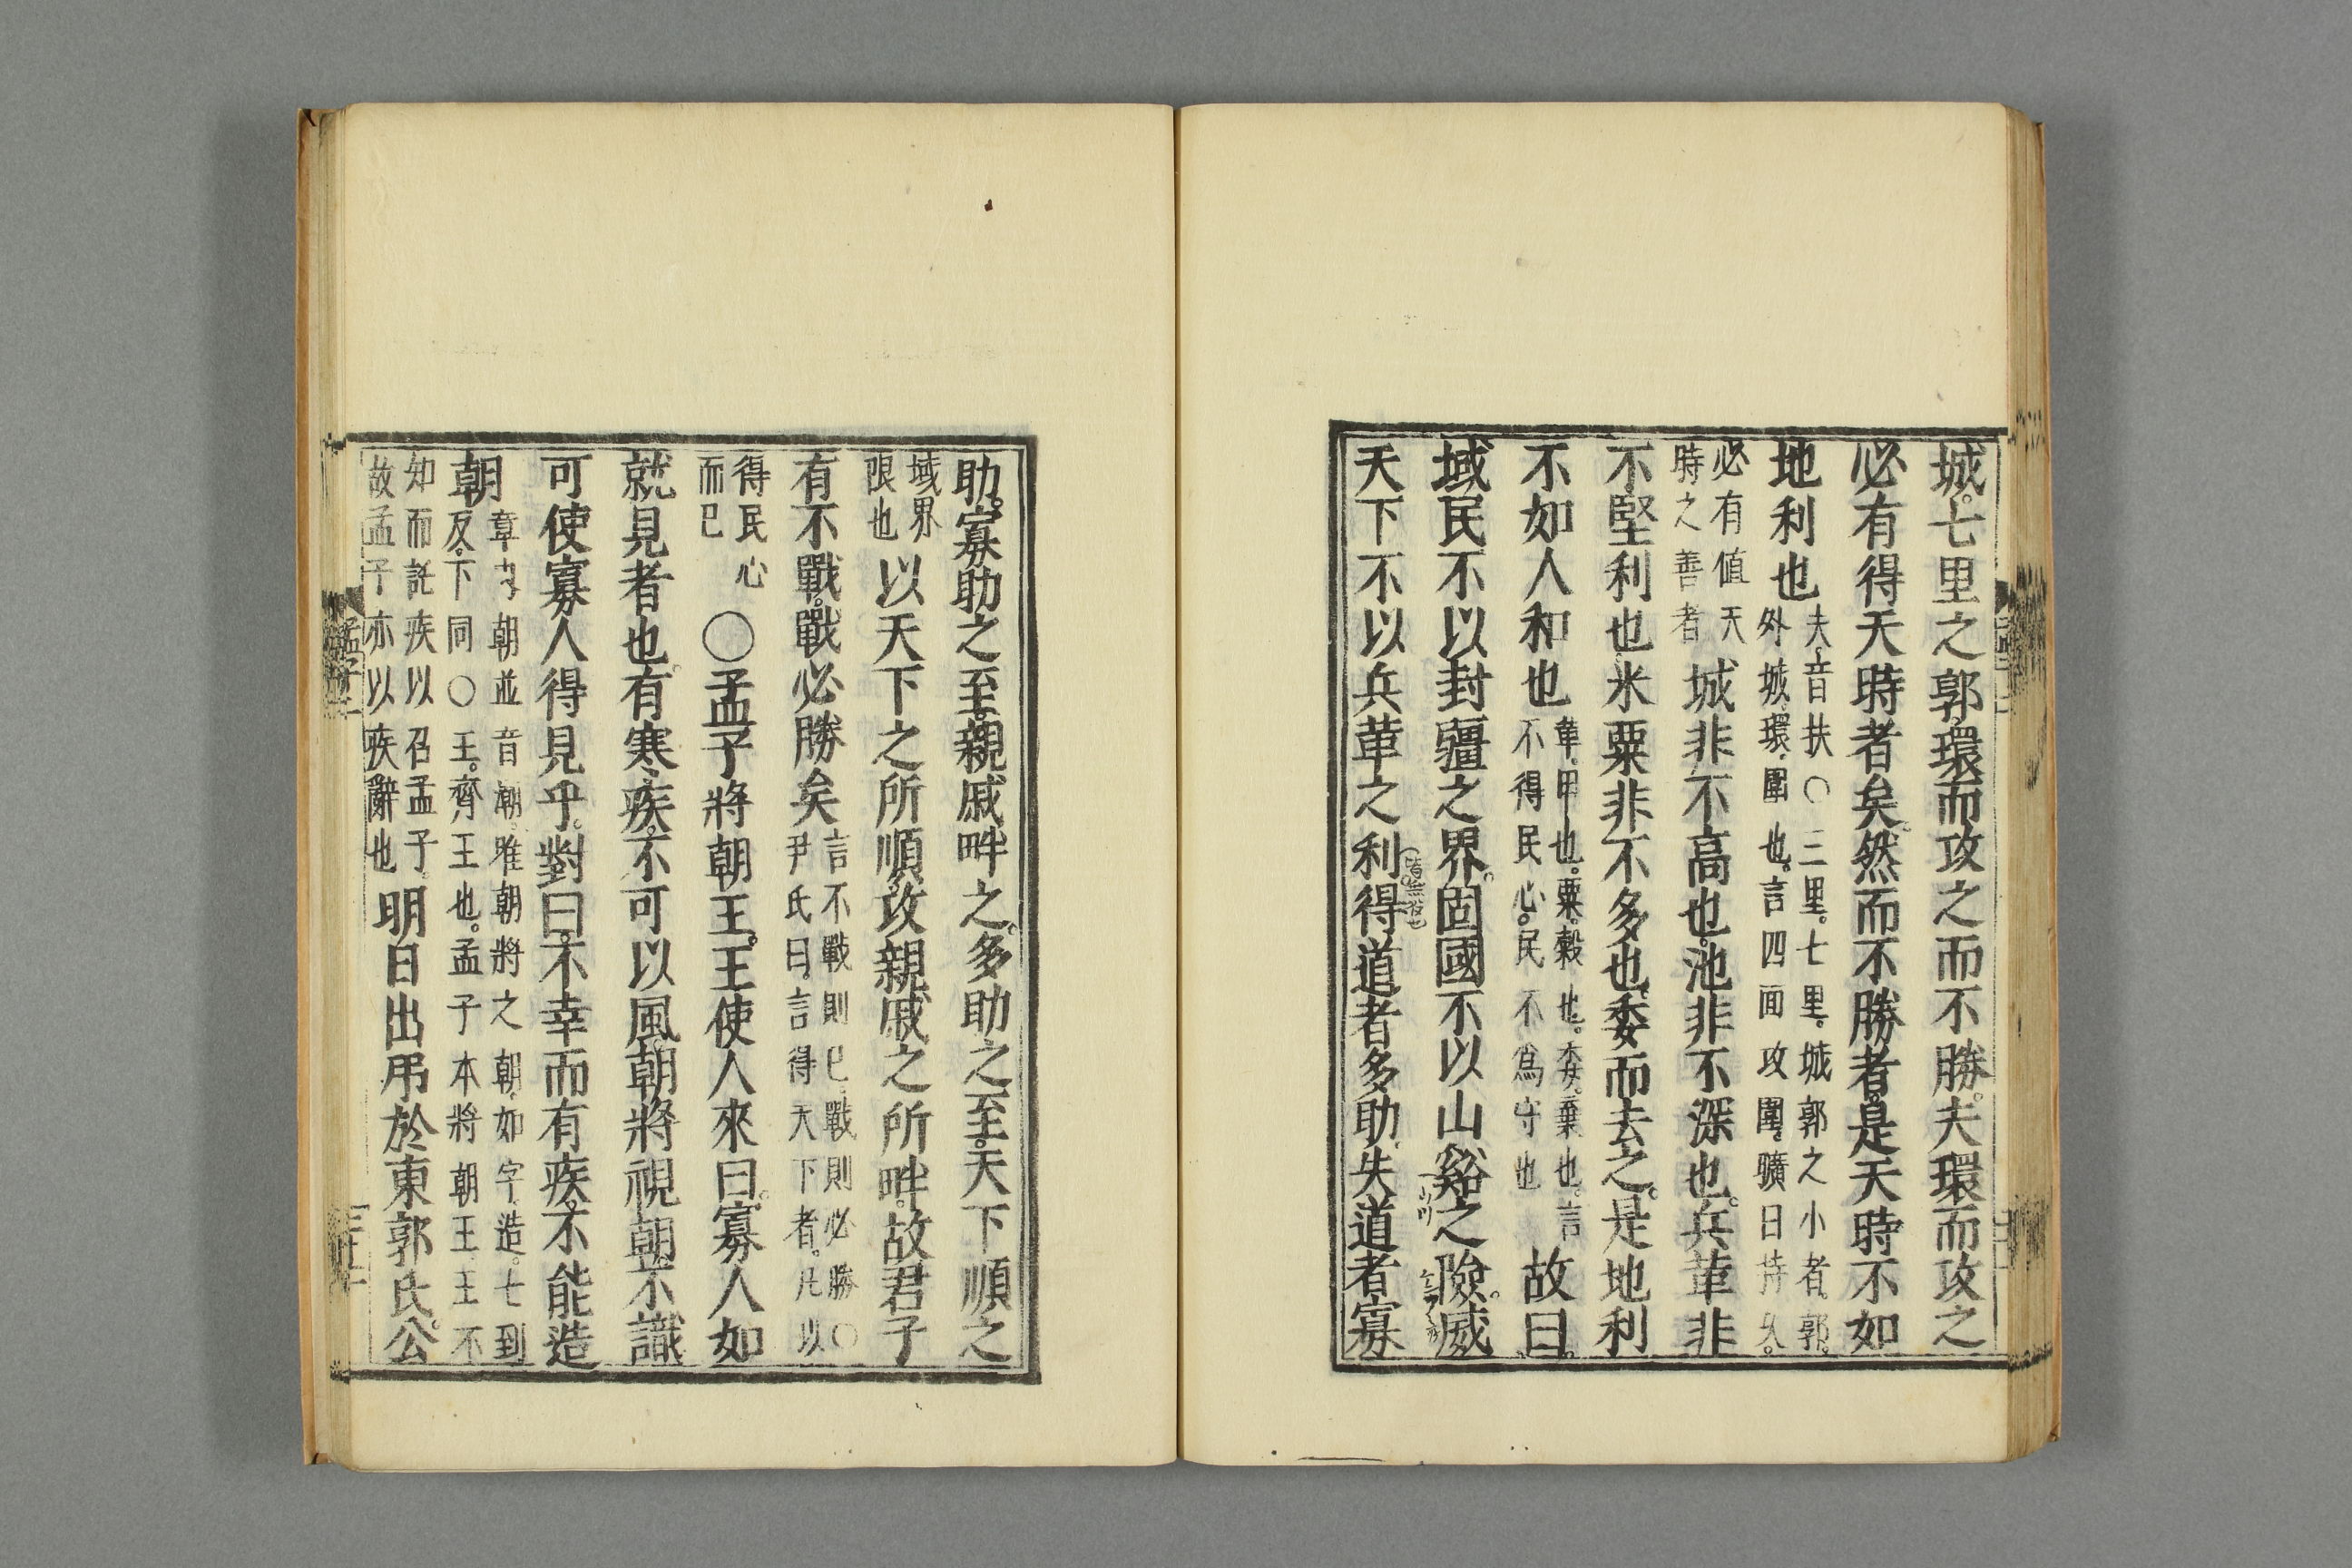 城。七里之郭。環而攻之而不勝。夫環而攻之
必有得天時者矣。然而不勝者。是天時不如
地利也
夫。音扶〇三里。七里。城郭之小者。郭。
外城。環。圍也。言四面攻圍。曠日持久。
必有值天
時之善者
城非不高也。池非不深也。兵革非
不堅利也。米粟非不多也。委而去之。是地利
不如人和也
革。甲也。粟。穀也。委。棄也。言
不得民心。民不爲守也
故曰。
域民不以封疆之界。固國不以山谿之險。威
天下不以兵革之利。得道者多助。失道者寡
助。寡助之至。親戚畔之。多助之至。天下順之
域界
限也
以天下之所順。攻親戚之所畔。故君子
有不戰。戰必勝矣
言不戰則已。戰則必勝〇
尹氏曰。言得天下者。凡以
得民心
而已
〇孟子將朝王。王使人來曰。寡人如
就見者也。有寒疾。不可以風。朝將視朝。不識
可使寡人得見乎。對曰。不幸而有疾。不能造
朝
章內朝並音潮。惟朝將之朝。如字。造。七到
反。下同〇王。齊王也。孟子本將朝王。王不
知而託疾以召孟子
故孟子亦以疾辭也
明日出弔於東郭氏。公
孟子